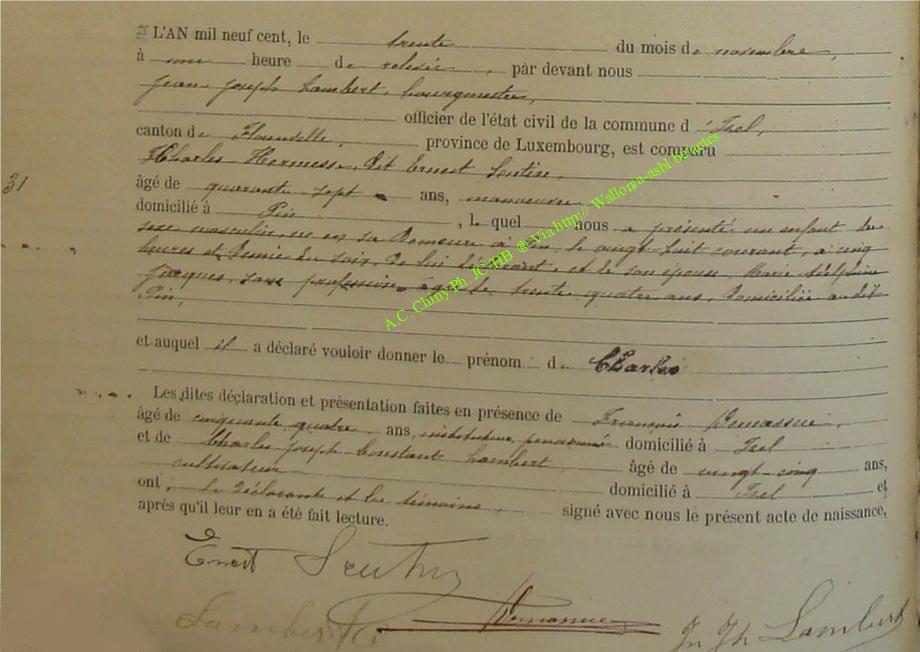 L'AN mil neuf cent, le trente du mois de novembre,
à une heure de relevée, par devant nous
Jean Joseph Lambert, bourgmestre,
officier de l'état civil de la commune d'Izel,
canton de Florenville, province de Luxembourg, est comparu
Charles Hermess, dit Ernest Sentin,
31
âgé de quarante sept ans, manoeuvre
domicilié à Pin, lequel nous a présenté un enfant du
sexe masculin, né en sa demeure à Pin, le vingt huit courant, à cinq
heures et demie du soir, de lui déclarant, et de son épouse, Marie Adelphine
Jacques, sans profession, agée de trente quatre ans, domiciliée audit
Pin,
et auquel il a déclaré vouloir donner le prénom de Charles
Les dites déclaration et présentation faites en présence de François
âgé de cinquante quatre ans, instituteur pensionné domicilié à Izel
et de Charles Joseph Constant Lambert, âgé de vingt cinq ans,
cultivateur domicilié à Izel et
ont, le déclarant et les témoins, signé avec nous le présent acte de naissance,
après qu'il leur en a été fait lecture.
Ernest
Lambert
Jn Jh Lambert
A.C. Chiny Ph. JC-HB ® Via http:// Wallonia-asbl.be/actes